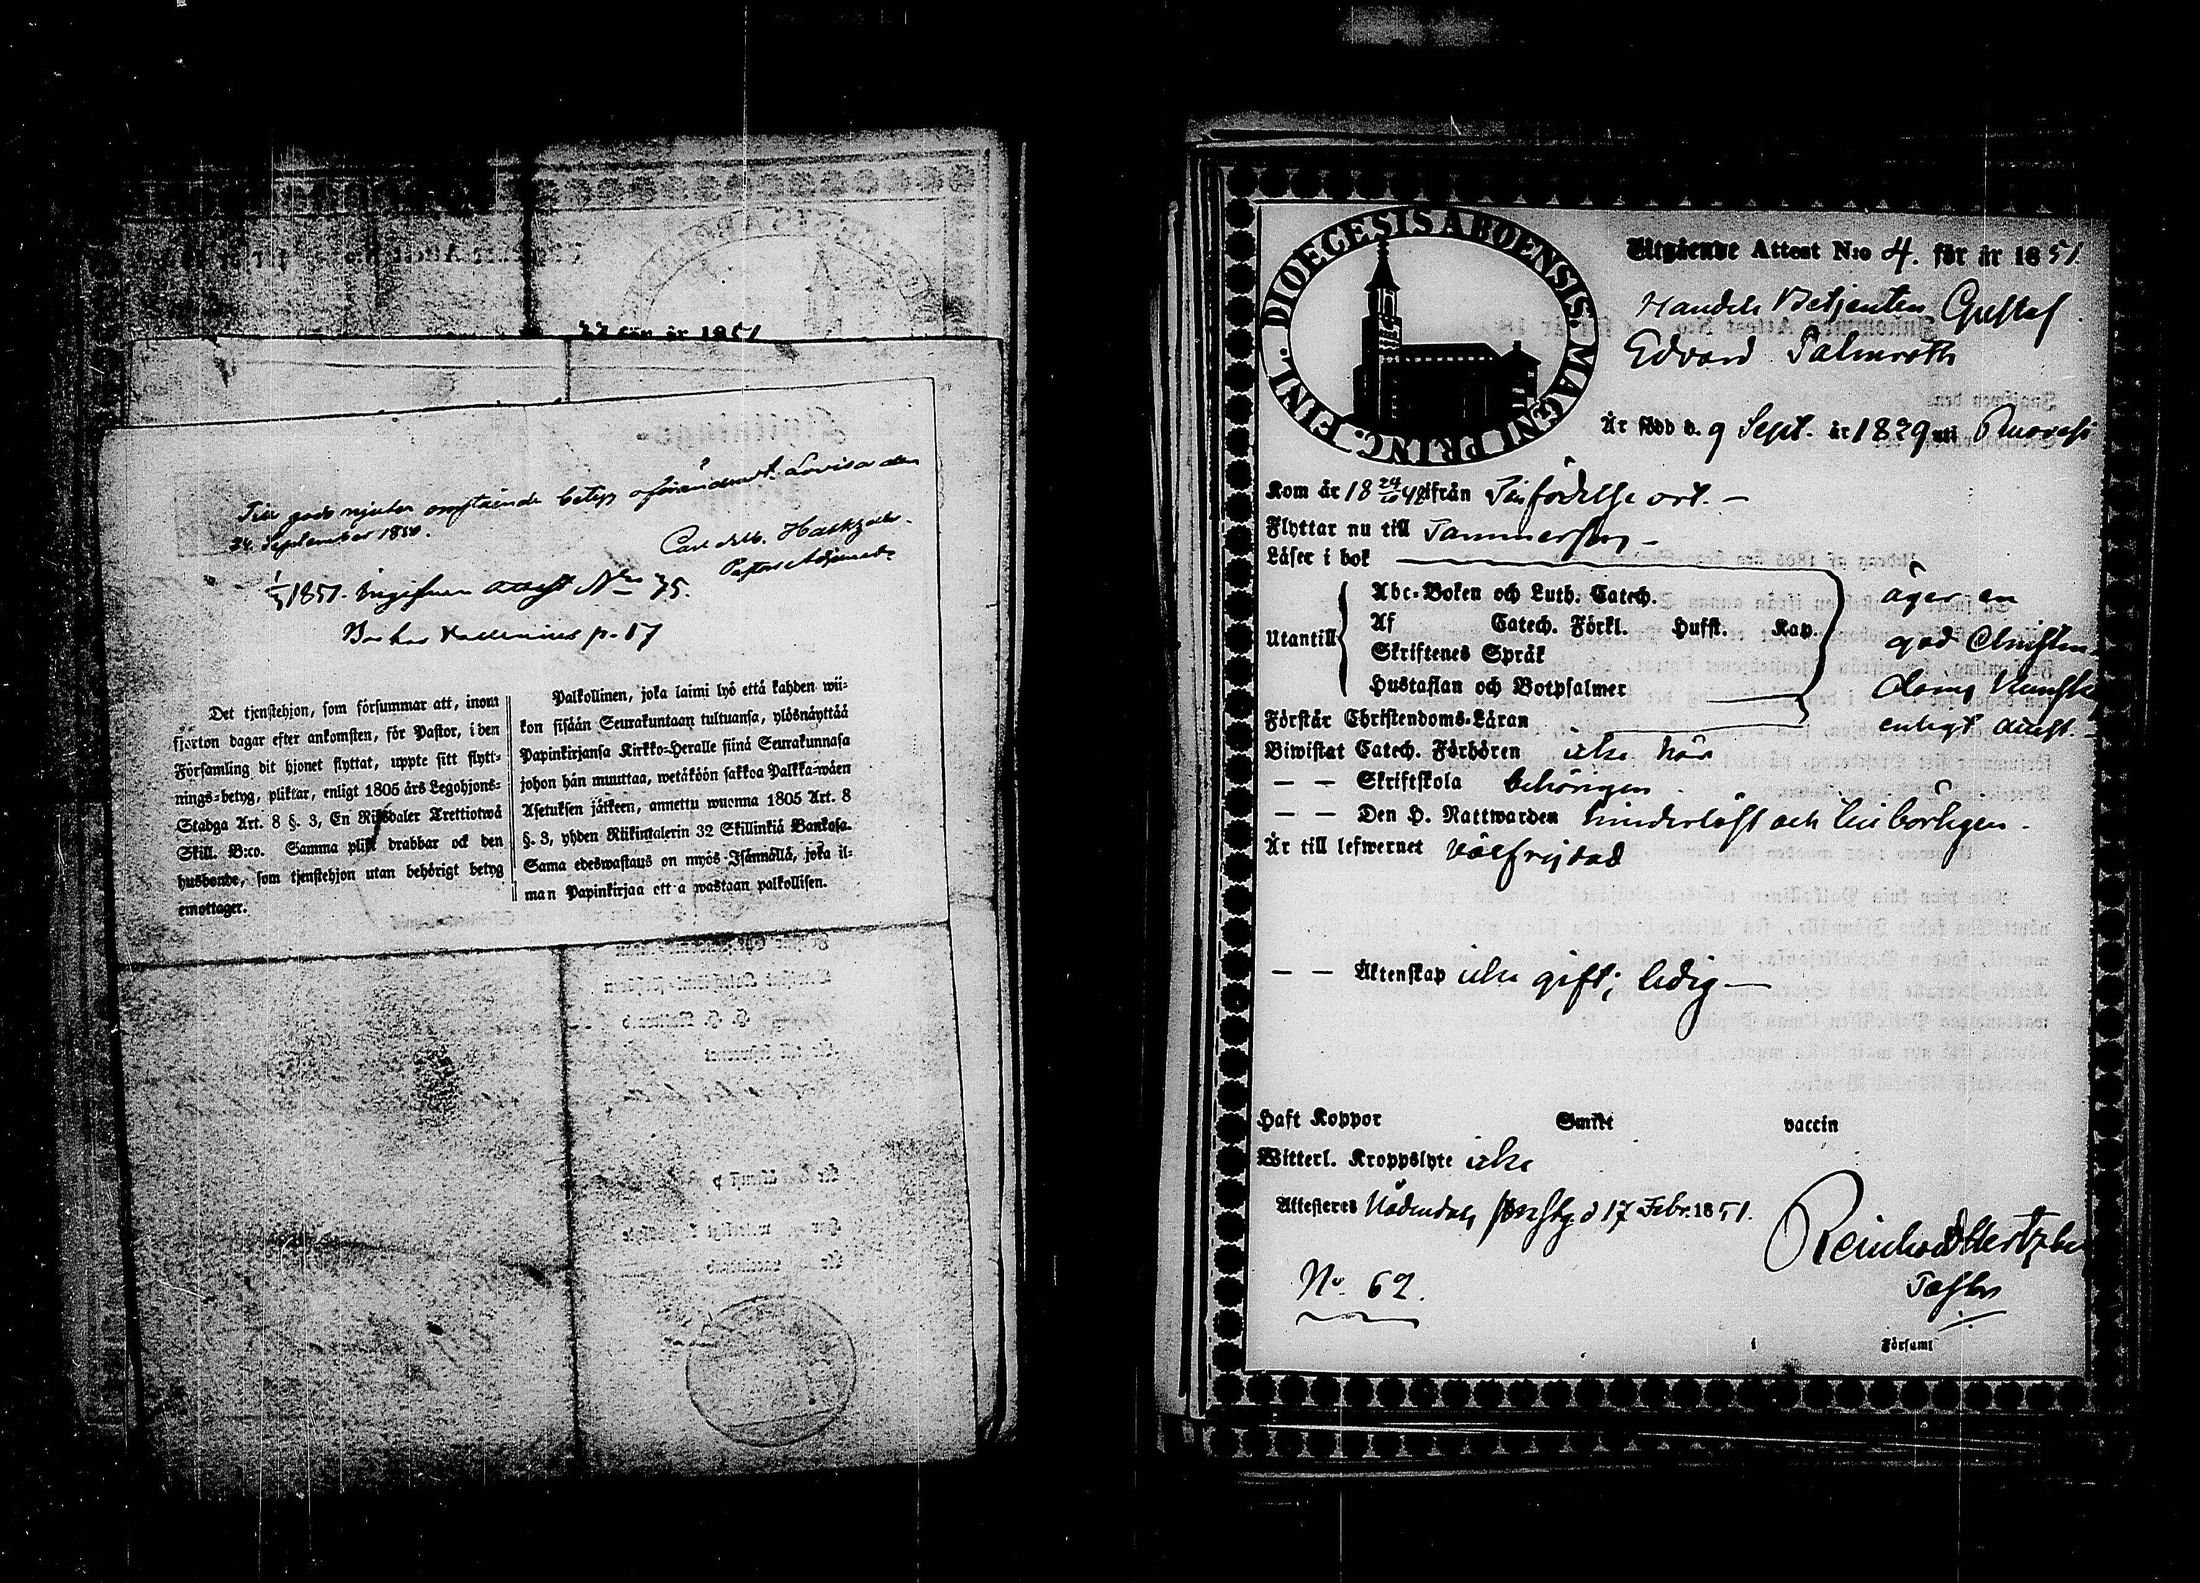 22 för år 1851
Till gods njuter omstående betyg oförändradt. Lovisa den
24 September 1850.
Pastors Adjunct.
1851. Ingifven attest No 75.
p. 17
Det tjenstehjon, som försummar att, inom
fjorton dagar efter ankomsten, för Pastor, i den
Församling dit hjonet flyttat, uppte sitt flytt-
nings-betyg, pliktar, enligt 1805 års Legohjons-
Stadga Art. 8 §. 3, En Riksdaler Trettiotwå
Skill. B:co. Samma plikt drabbar ock den
husbonde, som tjenstehjon utan behörigt betyg
emottager.
Palkollinen, joka laimi lyö että kahden wii-
kon sisään Seurakuntaan tultuansa, ylösnäyttää
Papinkirjansa Kirkko-Heralle siinä Seurakunnasa
johon hän muuttaa, wetäköön sakkoa Palkka-wäen
Asetuksen jälkeen, annettu wuonna 1805 Art. 8
§. 3, yhden Riikintalerin 32 Skillinkiä Bankosa.
Sama edeswastaus on myös Isännällä, joka il-
man Papinkirjaa ottaa wastaan palkollisen.
DIOECESIS ABOENSIS. MAGNI PRINC. FINL.
Utgående Attest N:o 4. för år 1851
Handels Betjenten Gustaf
Edvard Palmroth
Är född d. 9 Sept. år 1829 uti Ruovesi
Kom år 18 24/10 48 ifrån Sin födelse ort. —
Flyttar nu till Tammerfors —
Läser i bok
Utantill
Abc-Boken och Luth. Catech.
Af Catech. Förkl. Hufst. Kap.
Skriftenes Språk
Hustaflan och Botpsalmer
äger en
god Christen-
doms kunskap
enligt attest. —
Förstår Christendoms-Läran
Biwistat Catech. Förhören icke här
— — Skriftskola behörigen
— — Den H. Nattwarden hinderlöst och tillbörligen.
Är till lefwernet välfrejdad
— — Äktenskap icke gift; ledig —
Haft Koppor Smitt vaccin
Witterl. Kroppslyte icke
Attesteras Nådendals förs:lg. d 17 Febr. 1851.
Reinhold Hertzbe
Pastor
No. 62.
i Församl